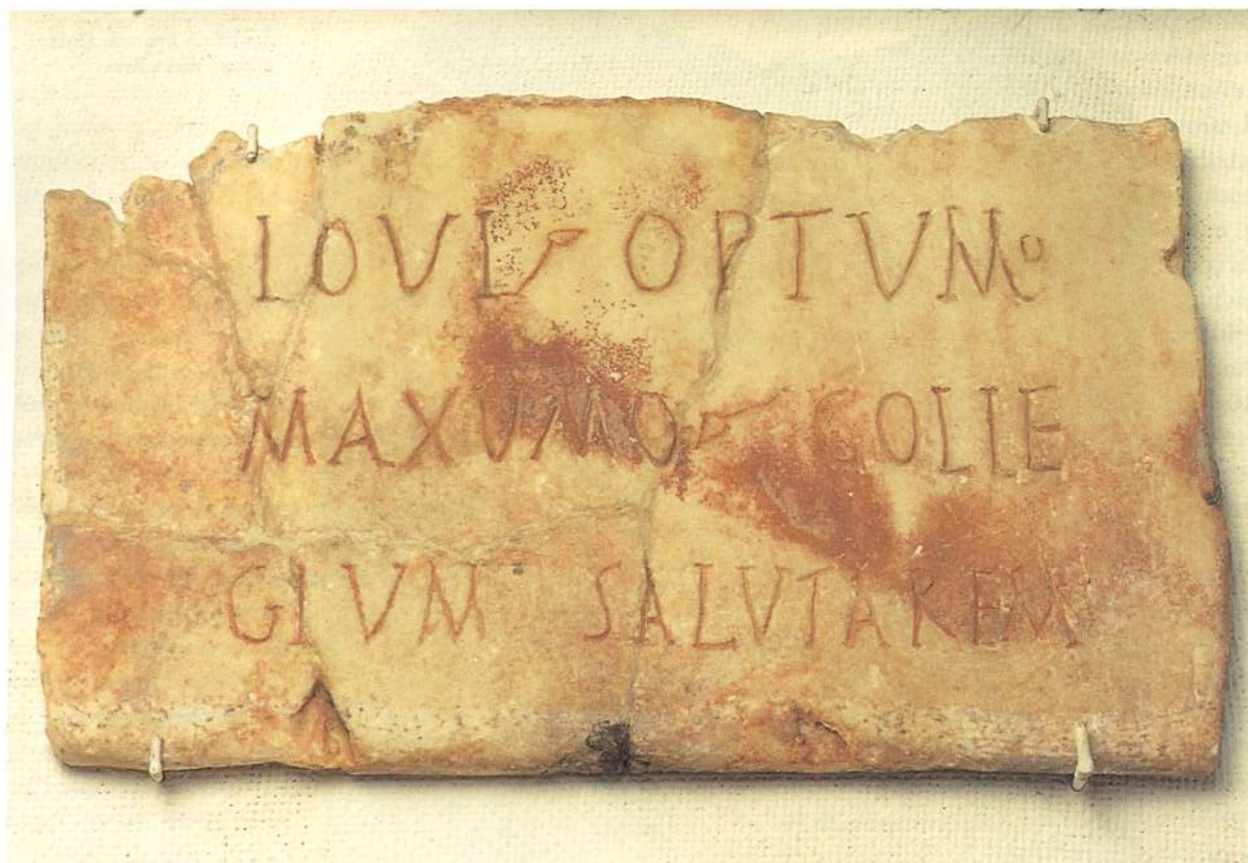 IOVI OPTVMo
MAXVMO COLLE
GIVM SALVTAREM